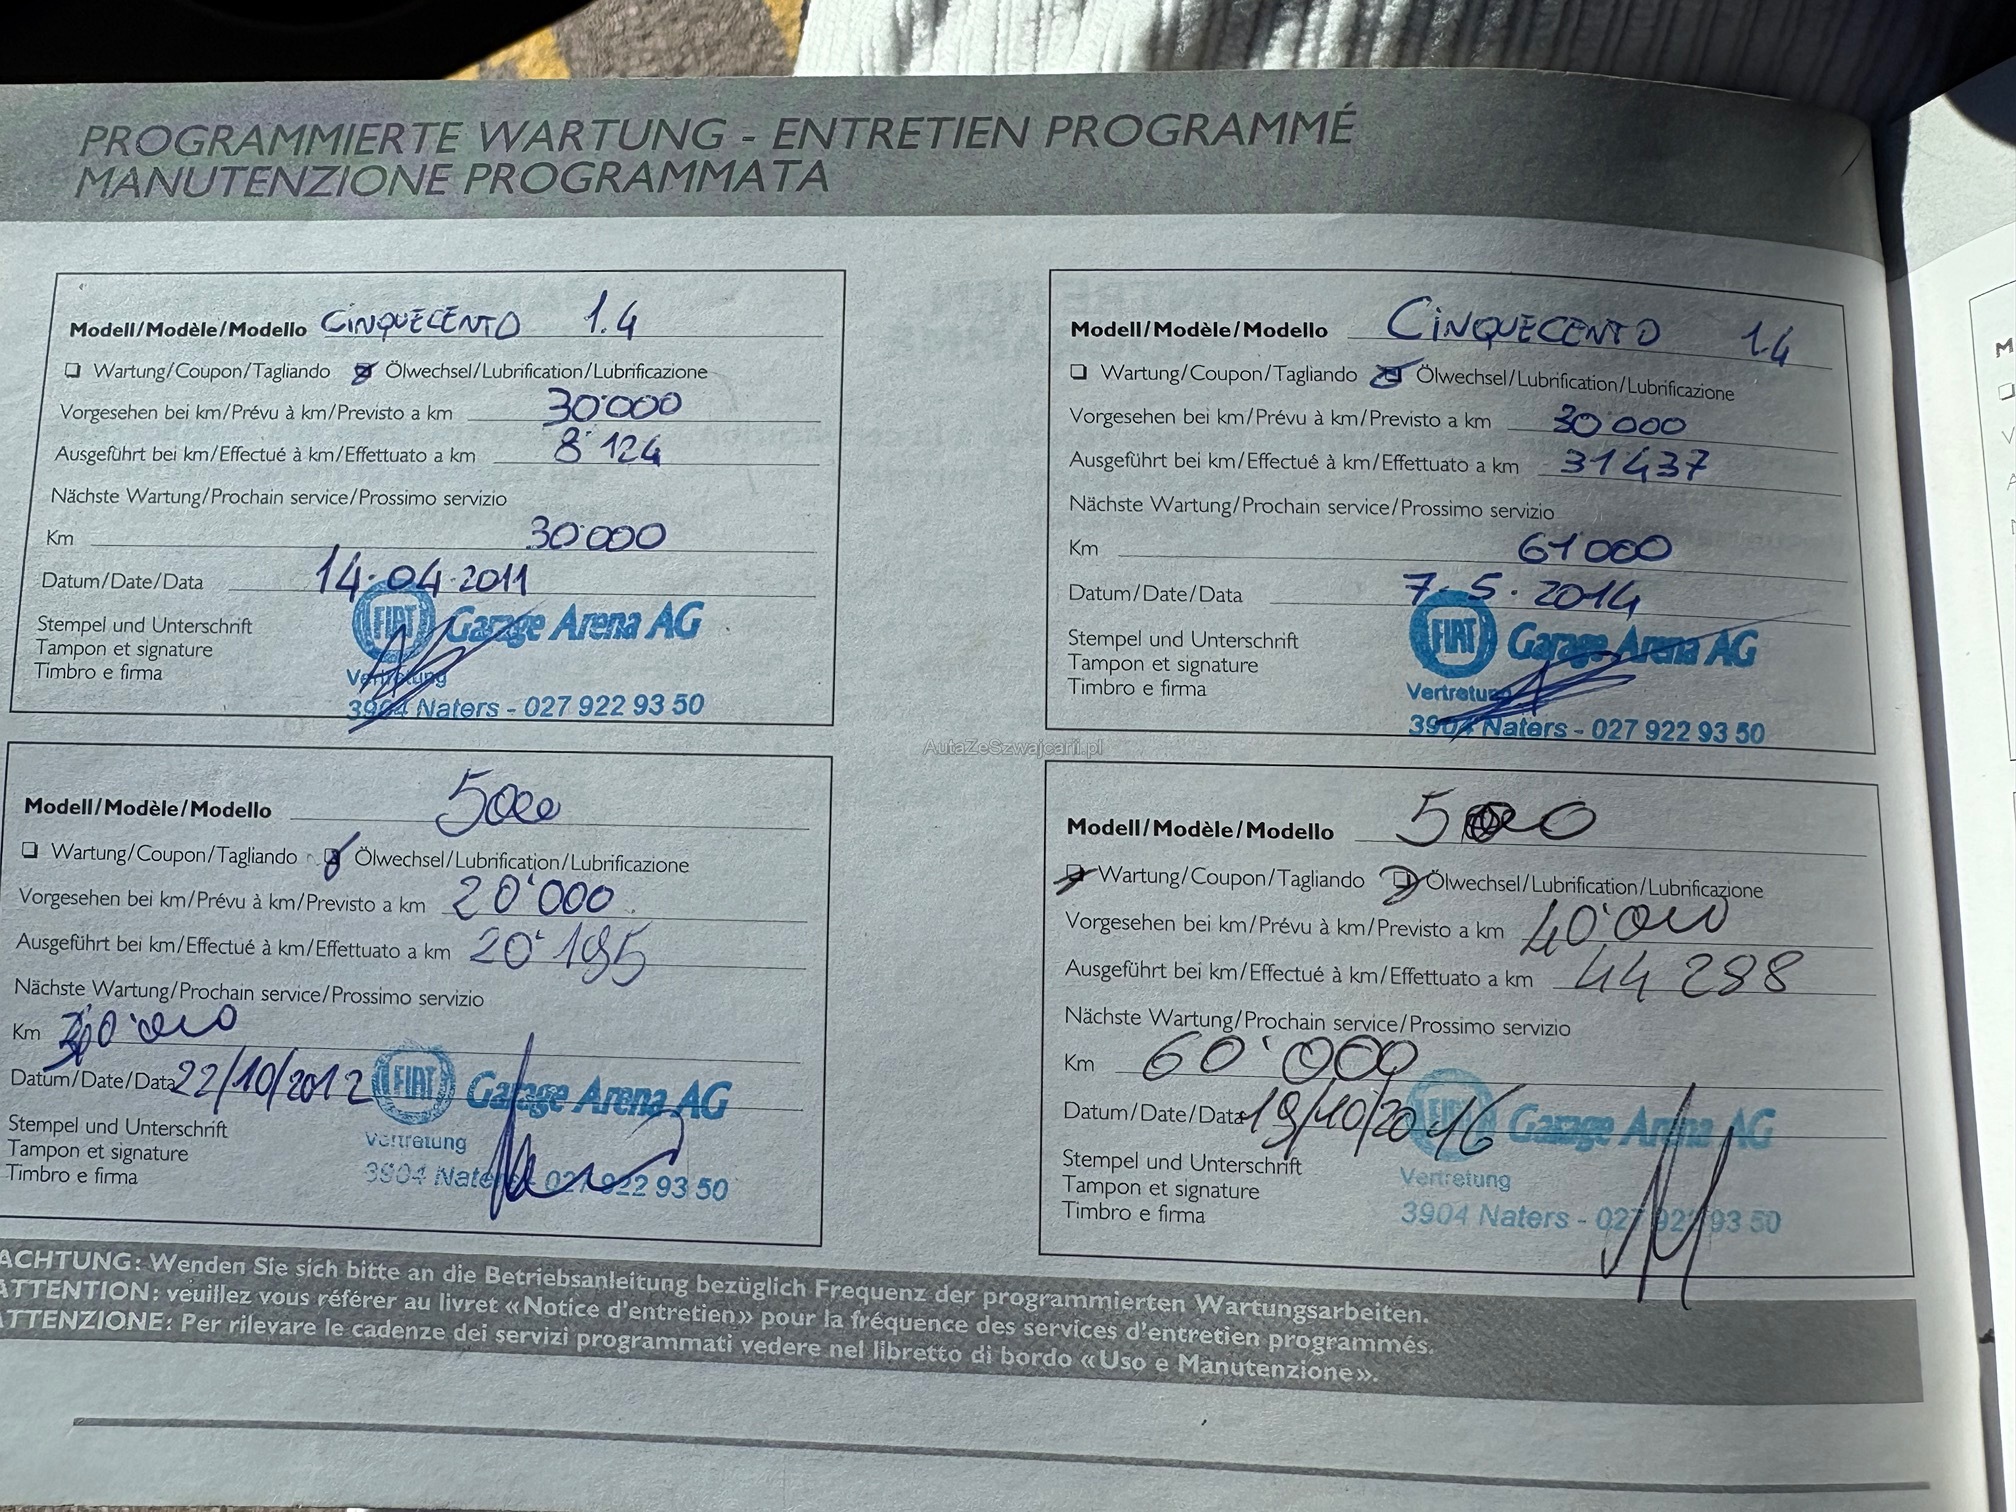 PROGRAMMIERTE WARTUNG - ENTRETIEN PROGRAMMÉ
MANUTENZIONE PROGRAMMATA
Modell/Modèle/Modello CINQUECENTO 1.4
Wartung/Coupon/Tagliando Ölwechsel/Lubrification/Lubrificazione
Vorgesehen bei km/Prévu à km/Previsto a km 30'000
Ausgeführt bei km/Effectué à km/Effettuato a km 8'124
Nächste Wartung/Prochain service/Prossimo servizio
Km 30'000
Datum/Date/Data 14.04.2011
Stempel und Unterschrift
Tampon et signature
Timbro e firma
FIAT Garage Arena AG
Vertretung
3904 Naters - 027 922 93 50
Modell/Modèle/Modello CINQUECENTO 1.4
Wartung/Coupon/Tagliando Ölwechsel/Lubrification/Lubrificazione
Vorgesehen bei km/Prévu à km/Previsto a km 30 000
Ausgeführt bei km/Effectué à km/Effettuato a km 31437
Nächste Wartung/Prochain service/Prossimo servizio
Km 61000
Datum/Date/Data 7.5.2014
Stempel und Unterschrift
Tampon et signature
Timbro e firma
FIAT Garage Arena AG
Vertretung
3904 Naters - 027 922 93 50
AutaZeSzwajcarii.pl
Modell/Modèle/Modello
Wartung/Coupon/Tagliando Ölwechsel/Lubrification/Lubrificazione
Vorgesehen bei km/Prévu à km/Previsto a km 20'000
Ausgeführt bei km/Effectué à km/Effettuato a km 20'195
Nächste Wartung/Prochain service/Prossimo servizio
Km 30'000
Datum/Date/Data 22/10/2012
Stempel und Unterschrift
Tampon et signature
Timbro e firma
FIAT Garage Arena AG
Vertretung
3904 Naters - 027 922 93 50
Modell/Modèle/Modello
Wartung/Coupon/Tagliando Ölwechsel/Lubrification/Lubrificazione
Vorgesehen bei km/Prévu à km/Previsto a km 40'000
Ausgeführt bei km/Effectué à km/Effettuato a km 44 288
Nächste Wartung/Prochain service/Prossimo servizio
Km 60'000
Datum/Date/Data 19/10/2016
Stempel und Unterschrift
Tampon et signature
Timbro e firma
FIAT Garage Arena AG
Vertretung
3904 Naters - 027 922 93 50
ACHTUNG: Wenden Sie sich bitte an die Betriebsanleitung bezüglich Frequenz der programmierten Wartungsarbeiten.
ATTENTION: veuillez vous référer au livret «Notice d'entretien» pour la fréquence des services d'entretien programmés.
ATTENZIONE: Per rilevare le cadenze dei servizi programmati vedere nel libretto di bordo «Uso e Manutenzione».